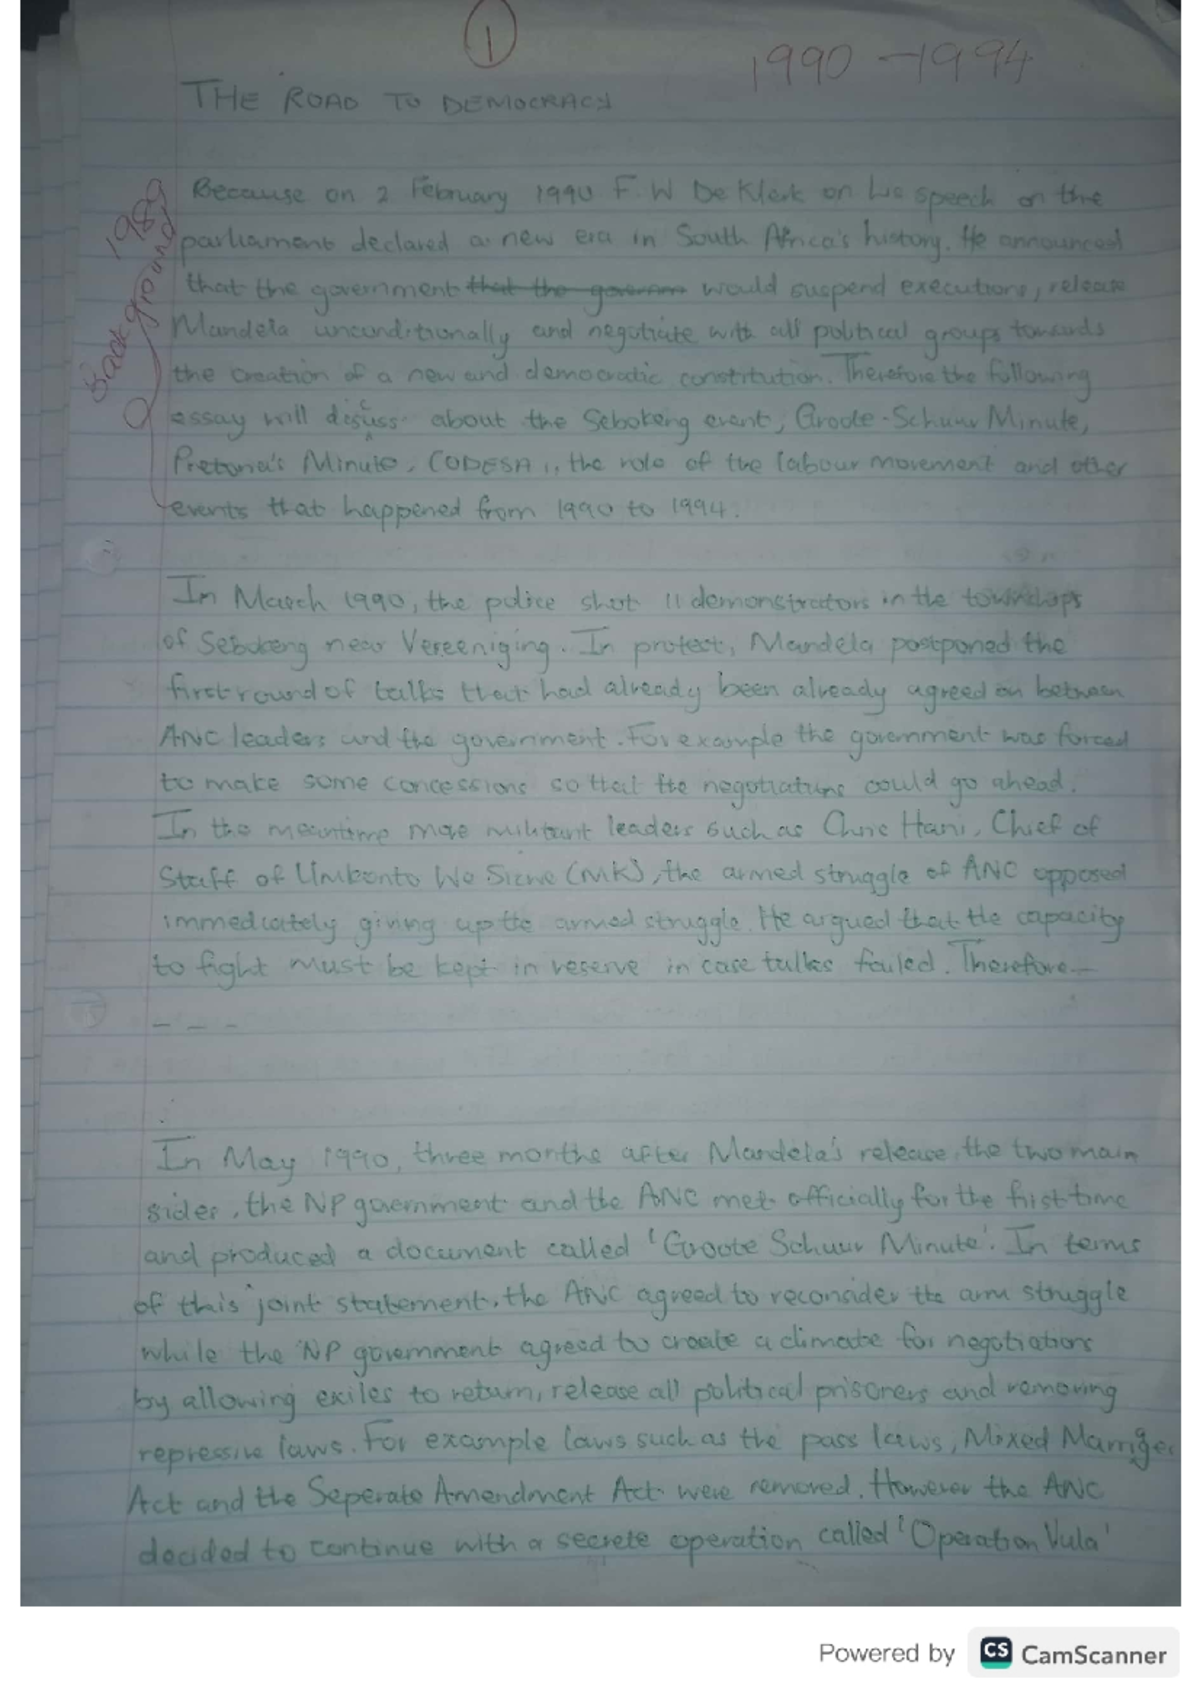 1
1990 - 1994
THE ROAD TO DEMOCRACY
Background 1989
Because on 2 February 1990 F. W De Klerk on his speech on the
parliament declared a new era in South Africa's history. He announced
that the government that the governm would suspend executions, release
Mandela unconditionally and negotiate with all political groups towards
the creation of a new and democratic constitution. Therefore the following
essay will discuss about the Sebokeng event, Groote-Schuur Minute,
Pretoria's Minute, CODESA 1, the role of the labour movement and other
events that happened from 1990 to 1994.
In March 1990, the police shot 11 demonstrators in the
of Sebokeng near Vereeniging. In protest, Mandela postponed the
first round of talks that had already been already agreed on between
ANC leaders and the government. For example the government was forced
to make some concessions so that the negotiations could go ahead.
In the meantime more militant leaders such as Chris Hani, Chief of
Staff of Umkonto We Sizwe (MK), the armed struggle of ANC opposed
immediately giving up the armed struggle. He argued that the capacity
to fight must be kept in reserve in case talks failed. Therefore —
- - -
In May 1990, three months after Mandela's release, the two main
sides, the NP government and the ANC met officially for the first time
and produced a document called 'Groote Schuur Minute'. In terms
of this joint statement, the ANC agreed to reconsider the arm struggle
while the NP government agreed to create a climate for negotiations
by allowing exiles to return, release all political prisoners and removing
repressive laws. For example laws such as the pass laws, Mixed Marriges
Act and the Seperate Amendment Act were removed. However the ANC
decided to continue with a secrete operation called 'Operation Vula'
Powered by CS CamScanner